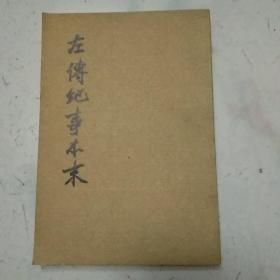 左傳紀事本末